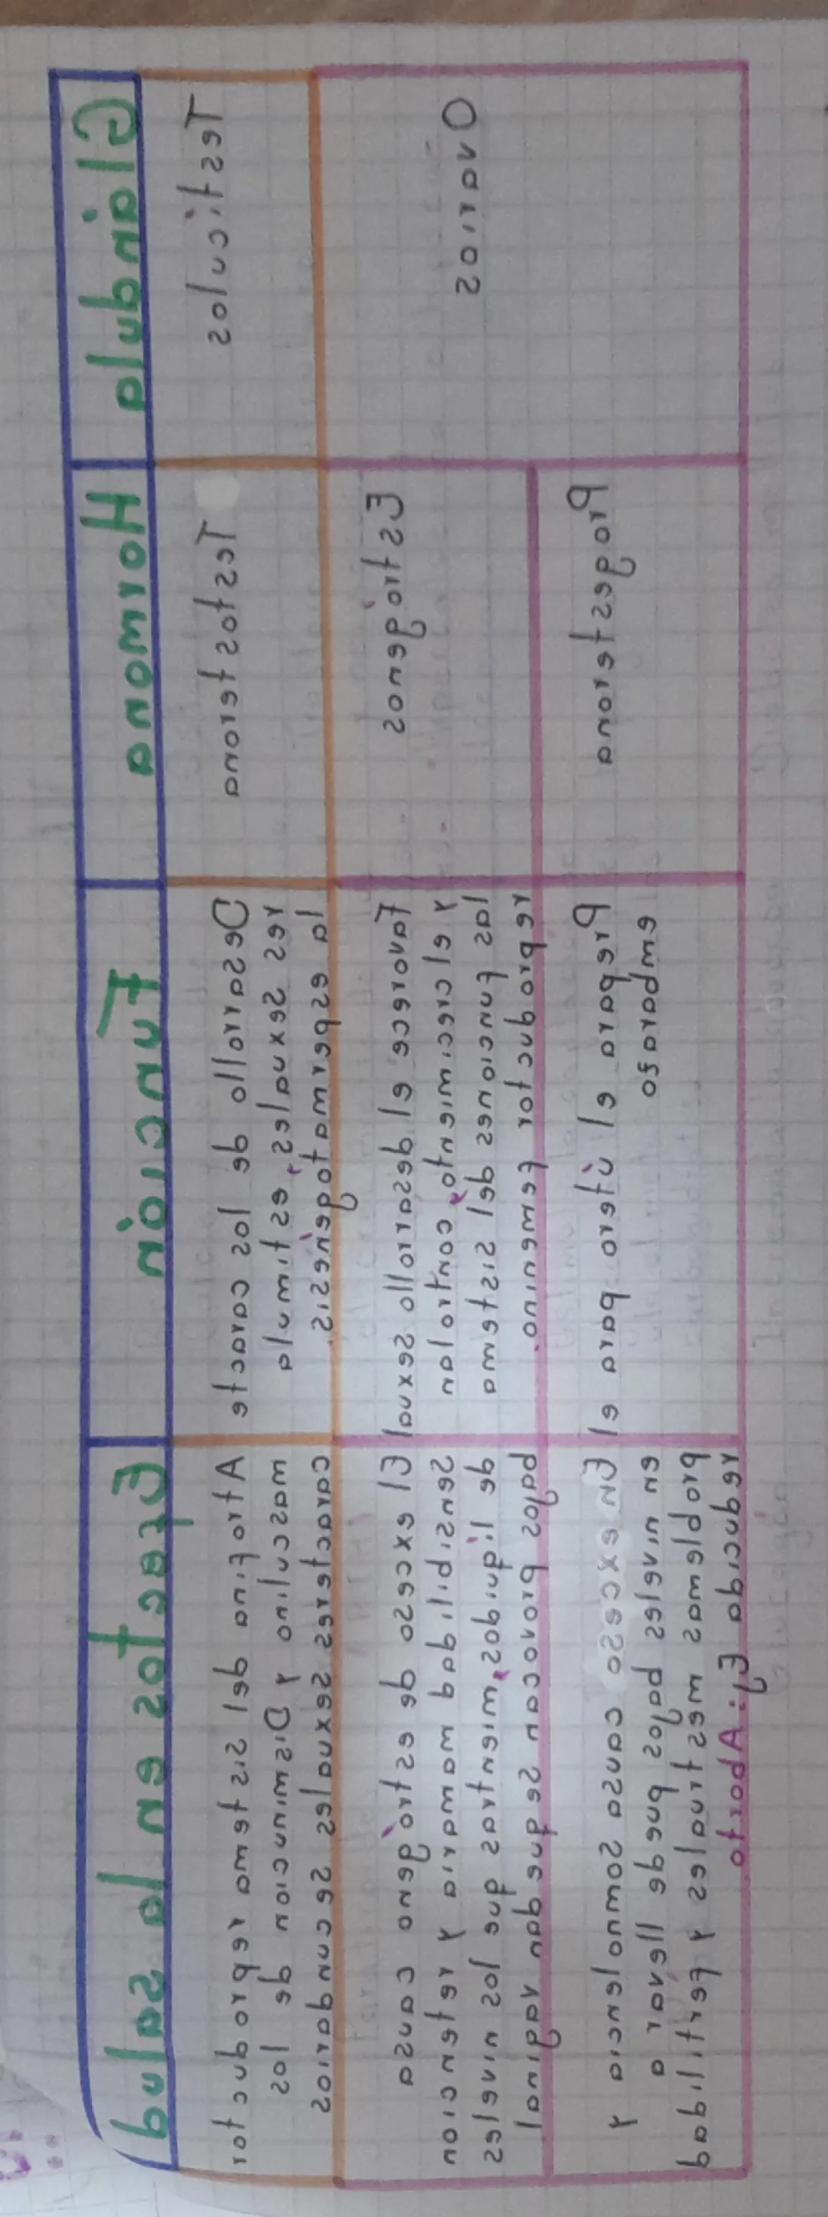 Glándula
Hormona
Función
Efectos en la salud
Testículos
Testosterona
Desarrollo de los caracte
res sexuales, estimula
la espermatogénesis.
Atrofina del sistema reproductor
masculino y Disminución de los
caracteres sexuales secundarios
Ovarios
Estrógenos
Favorece el desarrollo sexual
y el crecimiento, controlan
las funciones del sistema
reproductor femenino.
El exceso de estrógeno causa
sensibilidad mamaria y retención
de líquidos, mientras que los niveles
bajos provocan sequedad vaginal
Progesterona
Prepara el útero para el
embarazo
En exceso causa somnolencia y
en niveles bajos puede llevar a
problemas mestruales y fertilidad
reducida Ej: Aborto